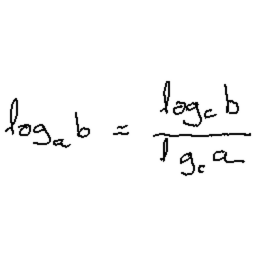 logₐ b = log_c b / l g_c a